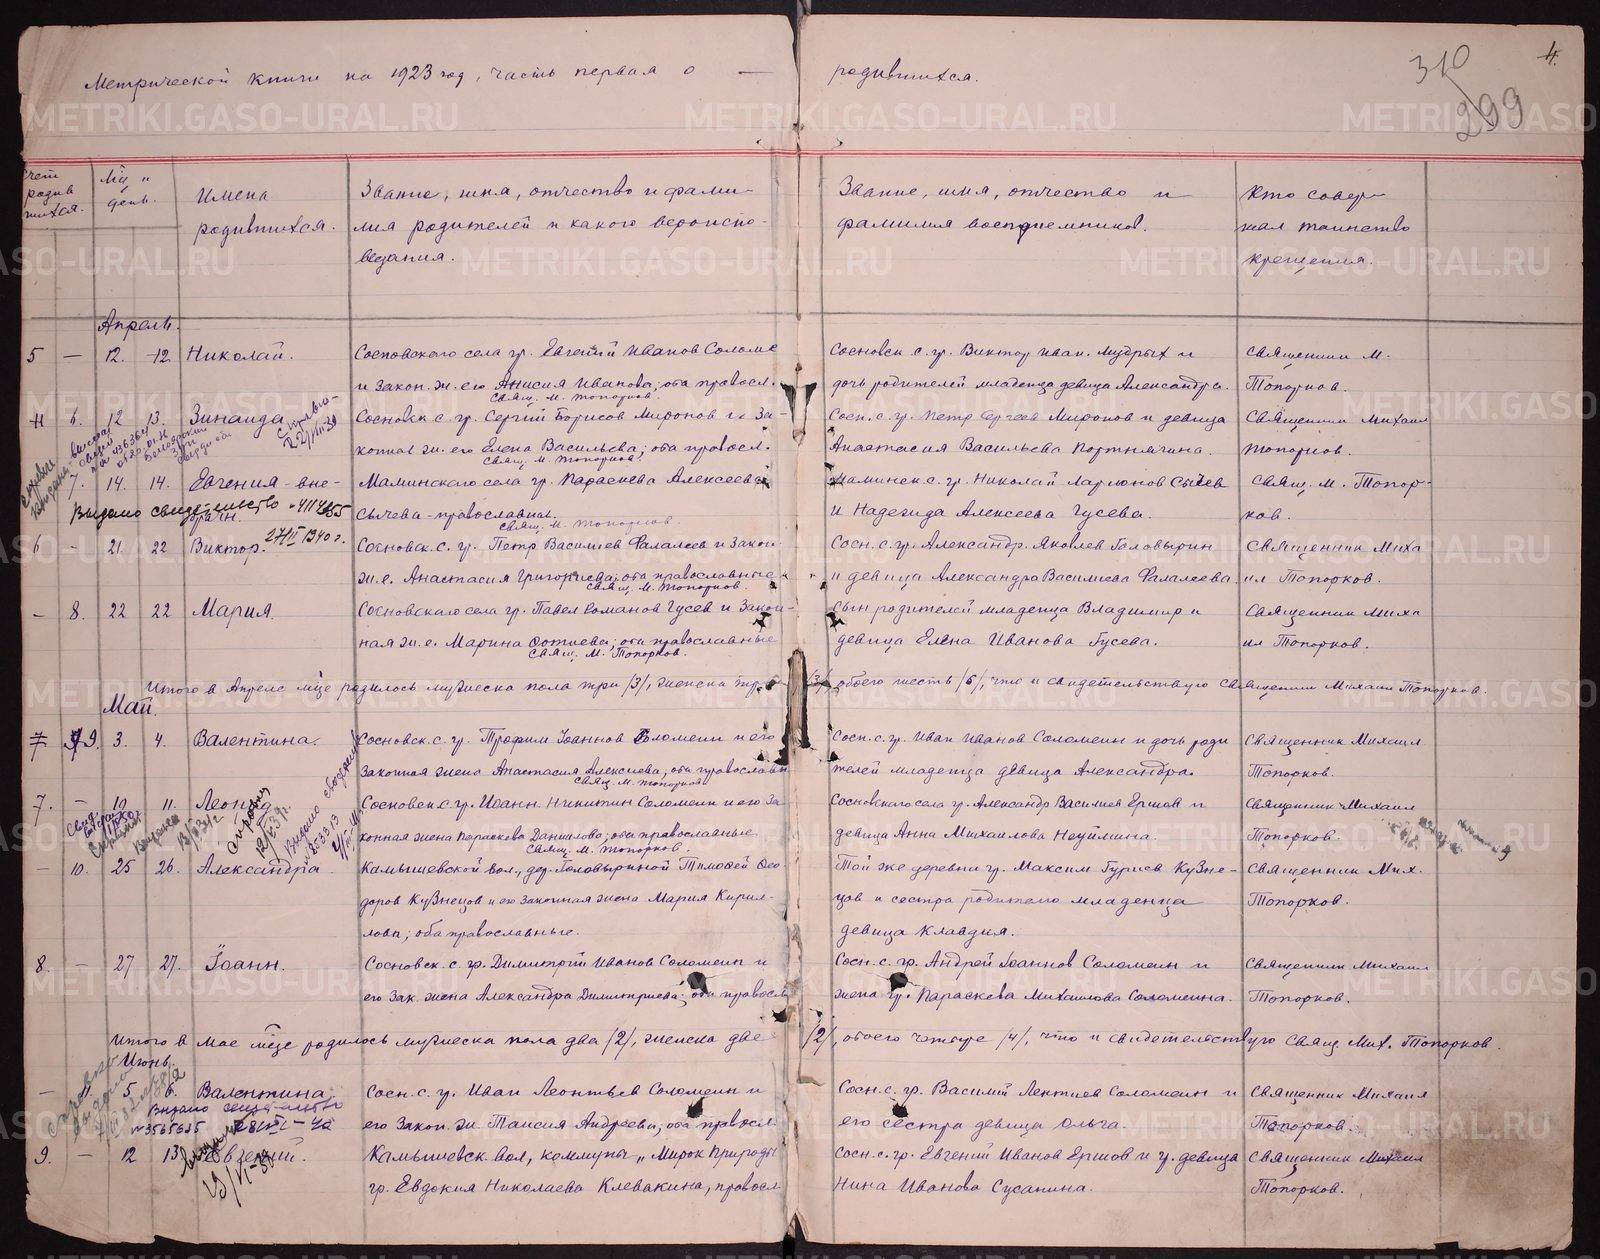 Метрической книги на 1923 год, часть первая о — родившихся.
310
299
4.
Счет родившихся.
М-ц и день.
Имена родившихся.
Звание, имя, отчество и фами-
лия родителей и какого вероиспо-
ведания.
Звание, имя, отчество и
фамилия восприемников.
Кто совер-
шал таинство
крещения.
Апрель.
5 — 12. 12 Николай. Сосновского села гр. Евгений Иванов Соломе Сосновск. с. гр. Виктор Иван. Мудрых и Священник М.
и закон. ж. его Анисия Иванова; оба правосл. дочь родителей младенца девица Александра. Топорков.
Свящ. М. Топорков.
6. 12 13. Зинаида Сосновск. с. гр. Сергий Борисов Миронов и за- Сосн. с. гр. Петр Сергеев Миронов и девица Священник Михаил
конная ж. его Елена Васильева; оба правосл. Анастасия Васильева Портнягина. Топорков.
Свящ. М. Топорков.
7. 14. 14. Евгения - вне- Маминского села гр. Параскева Алексеева Маминск. с. гр. Николай Ларионов Сычев Свящ. М. Топор-
брачн. Сычева - православная. и Надежда Алексеева Гусева. ков.
Выдано свидетельство
Свящ. М. Топорков.
27/II 1940 г.
6 - 21. 22 Виктор. Сосновск. с. гр. Петр Васильев Фалалеев и закон. Сосн. с. гр. Александр Яковлев Головырин Священник Миха
ж. е. Анастасия Григорьева; оба православные и девица Александра Васильева Фалалеева. ил Топорков.
Свящ. М. Топорков.
- 8. 22 22 Мария. Сосновского села гр. Павел Романов Гусев и закон- сын родителей младенца Владимир и Священник Миха
ная ж. е. Марина Фотиева; оба православные девица Елена Иванова Гусева. ил Топорков.
Свящ. М. Топорков.
Итого в Апреле м-це родилось мужеска пола три /3/, женска три /3/, обоего шесть /6/, что и свидетельствую Священник Михаил Топорков.
Май.
9. 3. 4. Валентина. Сосновск. с. гр. Трофим Иоаннов Соломеин и его Сосн. с. гр. Иван Иванов Соломеин и дочь роди Священник Михаил
законная жена Анастасия Алексиева; оба православн телей младенца девица Александра. Топорков.
Свящ. М. Топорков
7. - 10 11. Леонид Сосновск. с. гр. Иоанн Никитин Соломеин и его за Сосновского села гр. Александр Васильев Ершов и Священник Михаил
конная жена Параскева Даниилова; оба православные. девица Анна Михаилова Неуймина. Топорков.
Свящ. М. Топорков.
- 10. 25 26. Александра. Камышевской вол., дер. Головыриной Тимофей Фео Той же деревни гр. Максим Гуриев Кузне- Священник Мих.
доров Кузнецов и его законная жена Мария Кирил- цов и сестра родителю младенца Топорков.
лова; оба православные. девица Клавдия.
8. - 27 27. Иоанн. Сосновск. с. гр. Димитрий Иванов Соломеин и Сосн. с. гр. Андрей Иоаннов Соломеин и Священник Михаил
его зак. жена Александра Димитриева; оба правосл жена гр. Параскева Михаилова Соломеина. Топорков.
Итого в Мае м-це родилось мужеска пола два /2/, женска две /2/, обоего четыре /4/, что и свидетельствую Свящ. Мих. Топорков.
Июнь
- 11 5 6. Валентина Сосн. с. гр. Иван Леонтьев Соломеин и Сосн. с. гр. Василий Леонтиев Соломеин и Священник Михаил
Выдано свидетельство
его закон. ж. Таисия Андреева; оба правосл. его сестра девица Ольга. Топорков.
9. - 12 13 Евгений. Камышевск. вол., коммуны „Мирок Природы Сосн. с. гр. Евгений Иванов Ершов и гр. девица Священник Михаил
гр. Евдокия Николаева Клевакина, правосл. Нина Иванова Сусанина. Топорков.
METRIKI.GASO-URAL.RU